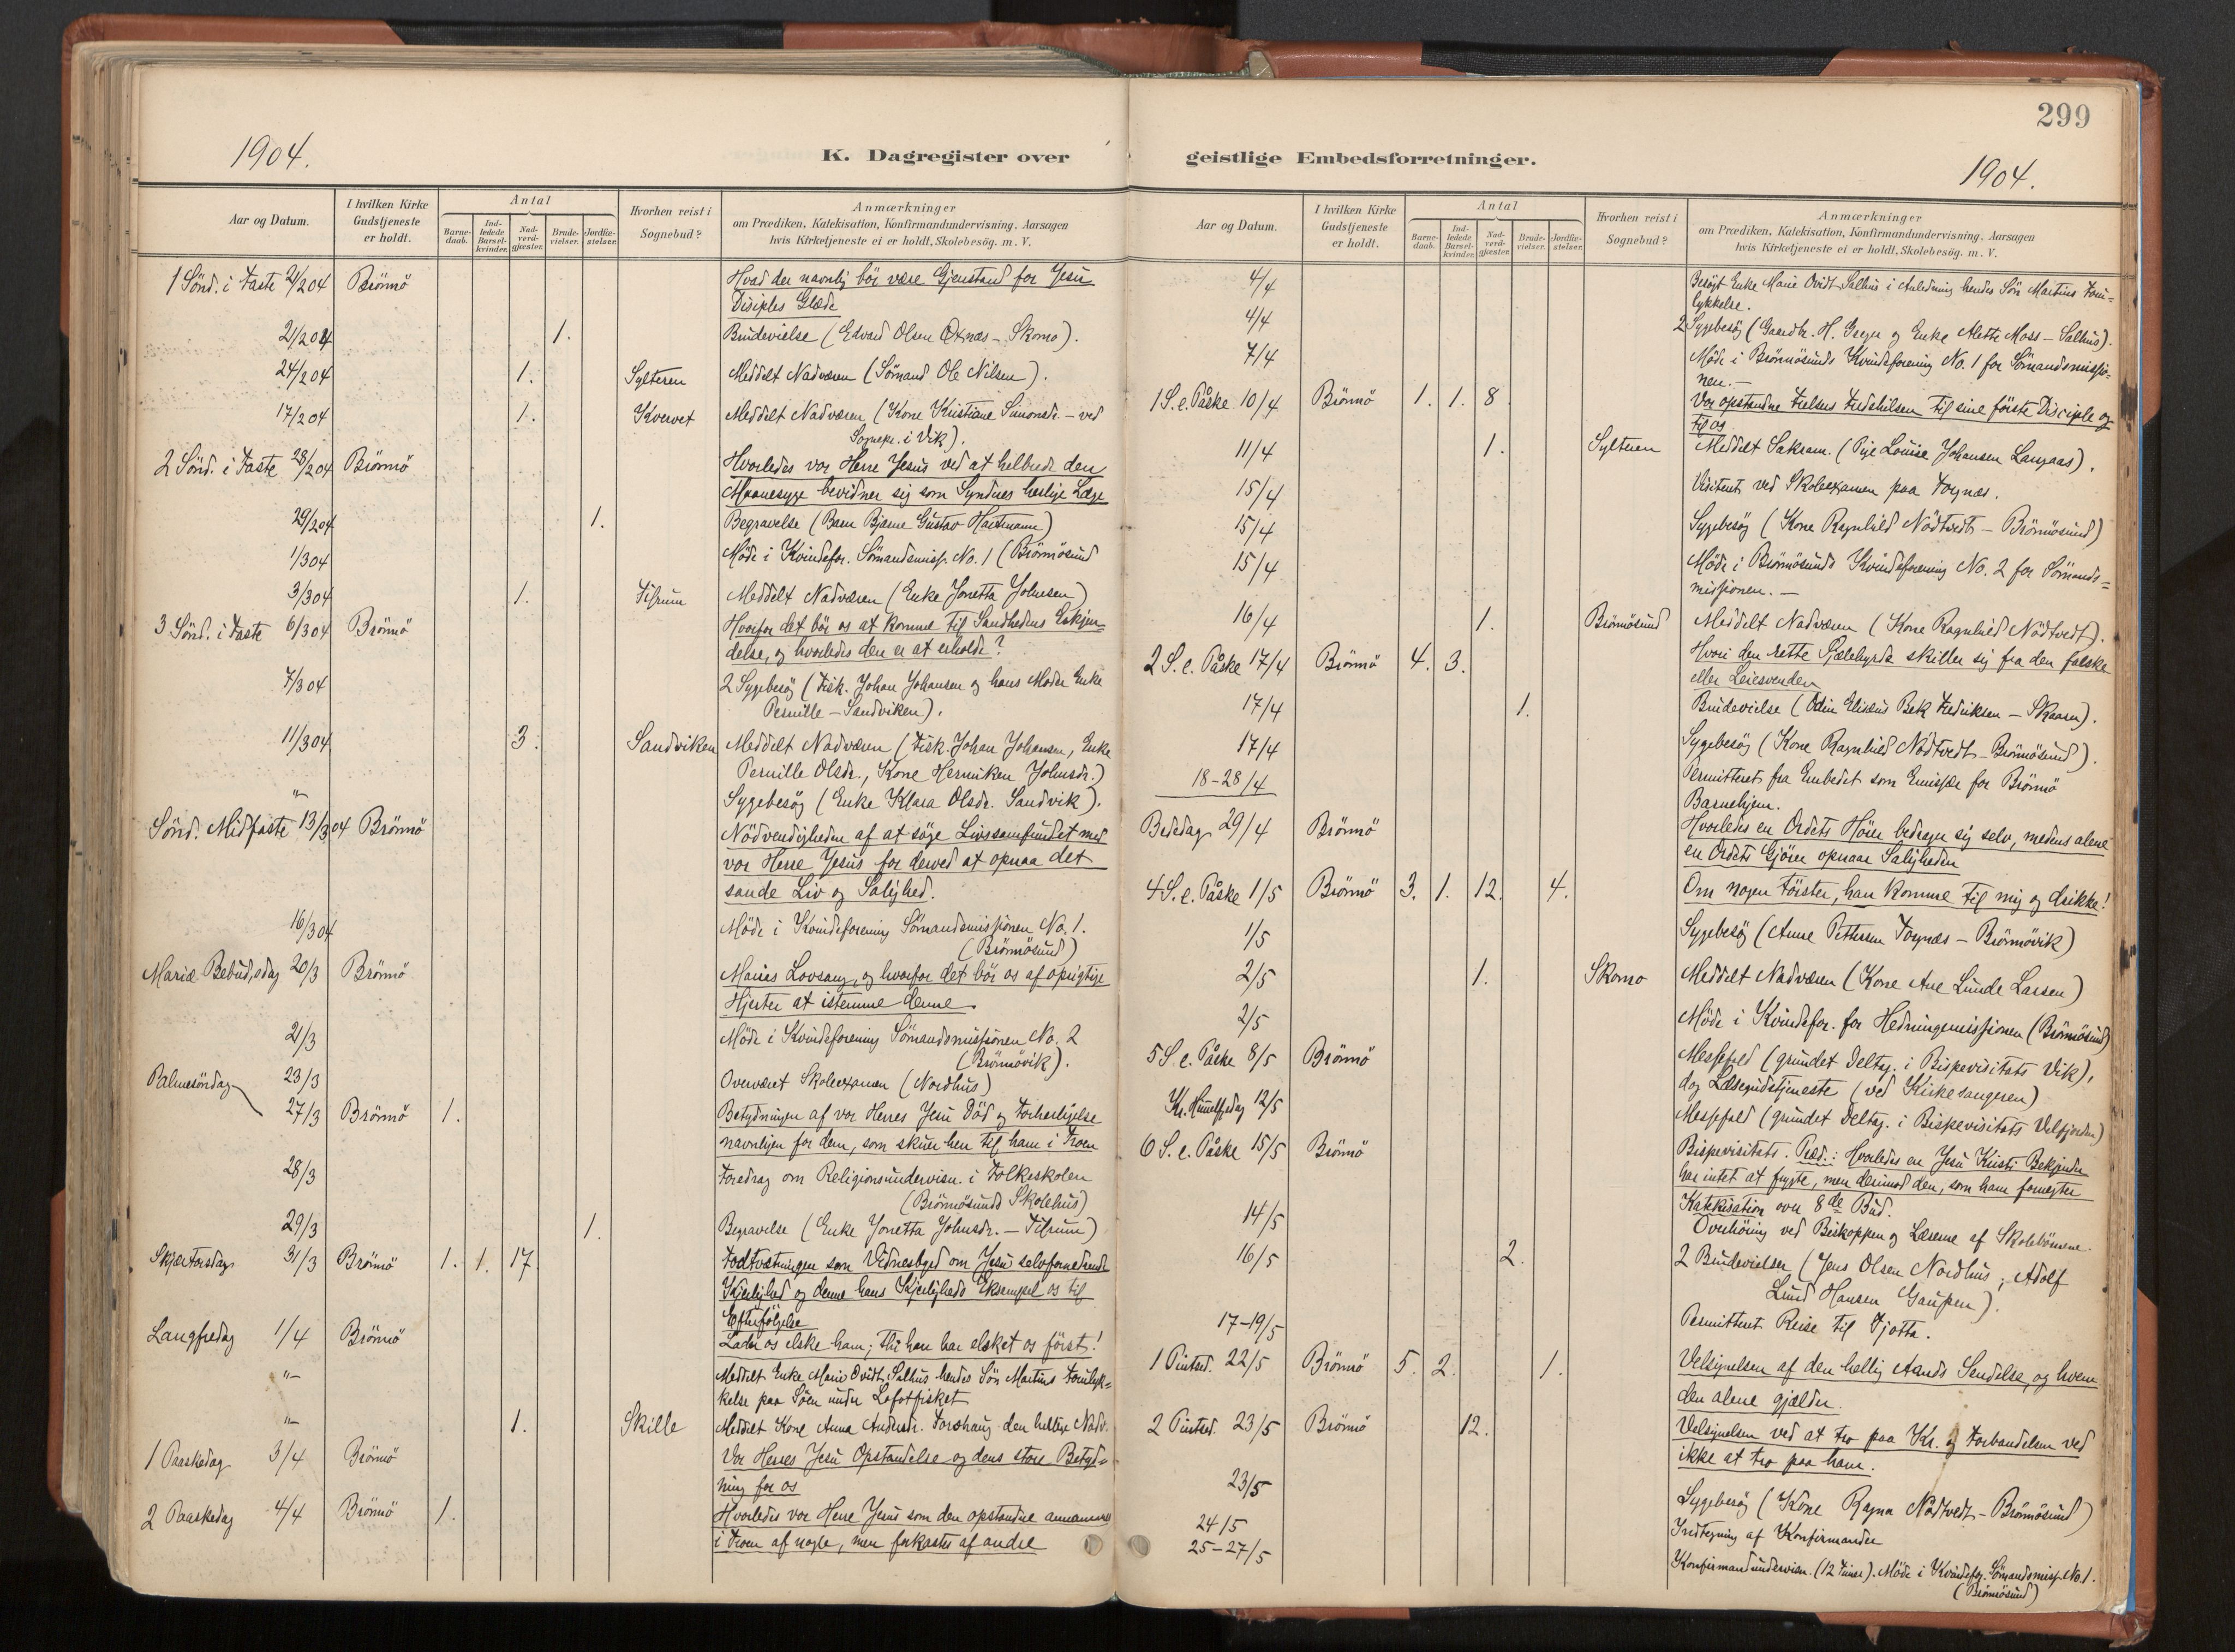 299
1904.
K. Dagregister over
Aar og Datum.
I hvilken Kirke Gudstjeneste er holdt.
Antal
Barne-daab.
Ind-ledede Barsel-kvinder.
Nad-verd-gjester.
Brude-vielser.
Jordfæ-stelser.
Hvorhen reist i Sognebud?
Anmærkninger
om Prædiken, Katekisation, Konfirmandundervisning, Aarsagen
hvis Kirketjeneste ei er holdt, Skolebesög, m. V.
1 Sönd. i Faste 21/2 04 Brönnö Hvad der navnlig bör være Gjenstand for Jesu
Disciples Glæde
21/2 04 1. Brudevielse (Edvard Olsen Oxnæs – Skomo).
24/2 04 1. Sylteren Meddelt Nadveren (Sömand Ole Nilsen).
17/2 04 1. Kvervet Meddelt Nadveren (Kone Kristiane Simonsdr. – ved
Sognepr. i Vik).
2 Sönd. i Faste 28/2 04 Brönnö Hvorledes vor Herre Jesus ved at helbrede den
Maanesyge bevidner sig som Syndens herlige Læge
29/2 04 1. Begravelse (Barn Bjarne Gustav Hartmann)
1/3 04 Möde i Kvindefor. Sömandsmiss. No. 1 (Brönnösund
3/3 04 1. Tilrum Meddelt Nadveren (Enke Jonetta Johnsen)
3 Sönd. i Faste 6/3 04 Brönnö Hvorfor det bör os at komme til Sandhedens Erkjen-
delse, og hvorledes den er at erholde?
7/3 04 2 Sygebesög (Fisk. Johan Johansen og hans Moder Enke
Pernille – Sandviken).
11/3 04 3. Sandviken Meddelt Nadveren (Fisk. Johan Johansen, Enke
Pernille Olsdr., Kone Henriken Johnsdr.)
"- Sygebesög (Enke Klara Olsdr. Sandvik).
Sönd. Midfaste 13/3 04 Brönnö Nödvendigheden af at söge Livssamfundet med
vor Herre Jesus for derved at opnaa det
sande Liv og Salighed.
16/3 04 Möde i Kvindeforening Sömandsmissionen No. 1.
(Brönnösund)
Mariæ Bebud.sdag 20/3 Brönnö Marias Lovsang, og hvorfor det bör os af oprigtige
Hjerter at istemme denne
21/3 Möde i Kvindeforening Sömandsmissionen No. 2
(Brönnövik).
23/3 Overværet Skoleexamen (Nordhus)
Palmesöndag 27/3 Brönnö 1. Betydningen af vor Herres Jesu Död og Forherligelse
navnligen for dem, som skuer hen til ham i Troen
28/3 Foredrag om Religionsundervisn. i Folkeskolen
(Brönnösunds Skolehus)
29/3 1. Begravelse (Enke Jonetta Johnsdr. – Tilrum)
Skjærtorsdag 31/3 Brönnö 1. 1. 17. Fodtvætningen som Vidnesbyrd om Jesu selvfornedrende
Kjerlighed og denne hans Kjerligheds Eksempel os til
Efterfölgelse
Langfredag 1/4 Brönnö Lader os elske ham; thi han har elsket os först!
"- Meddelt Enke Marie Qvidt, Salhus hendes Sön Martins Forulyk-
kelse paa Söen under Lofotfisket
"- 1. Skille Meddelt Kone Anna Andersdr. Torshaug den hellige Nadv.
1 Paaskedag 3/4 Brönnö Vor Herres Jesu Opstandelse og dens store Betyd-
ning for os
2 Paaskedag 4/4 Brönnö 1. Hvorledes vor Herre Jesus som den opstandne annammes
i Troen af nogle, men forkastes af andre
geistlige Embedsforretninger.
1904.
Aar og Datum.
I hvilken Kirke Gudstjeneste er holdt.
Antal
Barne-daab.
Ind-ledede Barsel-kvinder.
Nad-verd-gjester.
Brude-vielser.
Jordfæ-stelser.
Hvorhen reist i Sognebud?
Anmærkninger
om Prædiken, Katekisation, Konfirmandundervisning, Aarsagen
hvis Kirketjeneste ei er holdt, Skolebesög, m. V.
4/4 Besögt Enke Marie Qvidt Salhus i Anledning hendes Sön Martins Foru-
lykkelse.
4/4 2 Sygebesög (Gaardbr. H. Greger og Enke Alette Moss – Salhus).
7/4 Möde i Brönnösunds Kvindeforening No. 1 for Sömandsmissio-
nen. –
1 S. e. Påske 10/4 Brönnö 1. 1. 8. Vor opstandne Frelsers Fredshilsen til sine förste Disciple og
til os
11/4 1. Sylteren Meddelt Sakram. (Pige Louise Johansen Langaas).
15/4 Visitent ved Skoleexamen paa Torgnæs.
15/4 Sygebesög (Kone Ragnhild Nödtvedt – Brönnösund)
15/4 Möde i Brönnösunds Kvindeforening No. 2 for Sömands-
missionen. –
16/4 1. Brönnösund Meddelt Nadveren (Kone Ragnhild Nödtvedt).
2 S. e. Påske 17/4 Brönnö 4. 3. Hvori den rette Sjælehyrde skiller sig fra den falske
eller Leiesvenden
17/4 1. Brudevielse (Odin Elisæus Bek Fredriksen – Skaaren).
17/4 Sygebesög (Kone Ragnhild Nödtvedt – Brönnösund).
18-28/4 Permitteret fra Embedet som Emissær for Brönnö
Barnehjem.
Bededag 29/4 Brönnö Hvorledes en Ordets Hörer bedrager sig selv, medens alene
en Ordets Gjörer opnaar Saligheden
4 S. e. Påske 1/5 Brönnö 3. 1. 12. 4. Om nogen törster, han komme til mig og drikke!
1/5 Sygebesög (Anne Pettersen Torgnæs – Brönnövik)
2/5 1. Skomo Meddelt Nadveren (Kone Ane Lunde Larsen)
2/5 Möde i Kvindefor. for Hedningemissionen (Brönnösund)
5 S. e. Påske 8/5 Brönnö Messefald (grundet Deltag. i Bispevisitats Vik),
dog Læsegudstjeneste (ved Kirkesangeren)
Kr. Himmelf.dag 12/5 Messefald (grundet Deltag. i Bispevisitats Velfjorden)
6 S. e. Påske 15/5 Brönnö Bispevisitats. Præd.: Hvorledes en Jesu Kristi Bekjender
har intet at frygte, men derimod den, som ham fornegter
Katekisation over 8de Bud.
14/5 Overhöring ved Biskoppen og Lærerne af Skolebörnene.
16/5 2. 2 Brudevielser (Jens Olsen Nordhus; Adolf
Lund Hansen Gaupen).
17-19/5 Permitteret Reise til Tjötta.
1 Pintsed. 22/5 Brönnö 5. 2. 1. Velsignelsen af den hellig Aands Sendelse, og hvem
den alene gjælder.
2 Pintsed. 23/5 Brönnö 12. Velsignelsen ved at tro paa Kr. og Forbandelsen ved
ikke at tro paa ham.
23/5 Sygebesög (Kone Ragna Nödtvedt – Brönnösund)
24/5 Indtegning af Konfirmander
25-27/5 Konfirmandundervisn. (12 Timer). Möde i Kvindefor. Sömandsmiss. No. 1.
(Brönnösund)